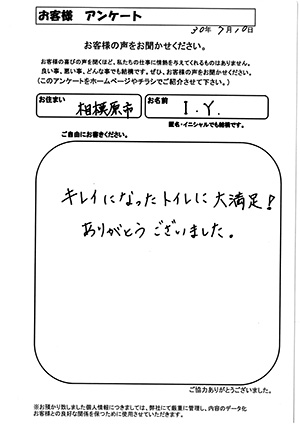 お客様 アンケート
30年7月10日
お客様の声をお聞かせください。
お客様の喜びの声を聞くほど、私たちの仕事に情熱を与えてくれるものはありません。
良い事、悪い事、どんな事でも結構です。ぜひ、お客様の声をお聞かせください。
(このアンケートをホームページやチラシでご紹介させて下さい。)
お住まい
相模原市
お名前
I.Y.
匿名・イニシャルでも結構です。
ご自由にお書きください。
キレイになったトイレに大満足!
ありがとうございました。
ご協力ありがとうございました。
※お預かり致しました個人情報につきましては、弊社にて厳重に管理し、内容のデータ化
お客様との良好な関係を保つために使用させていただきます。